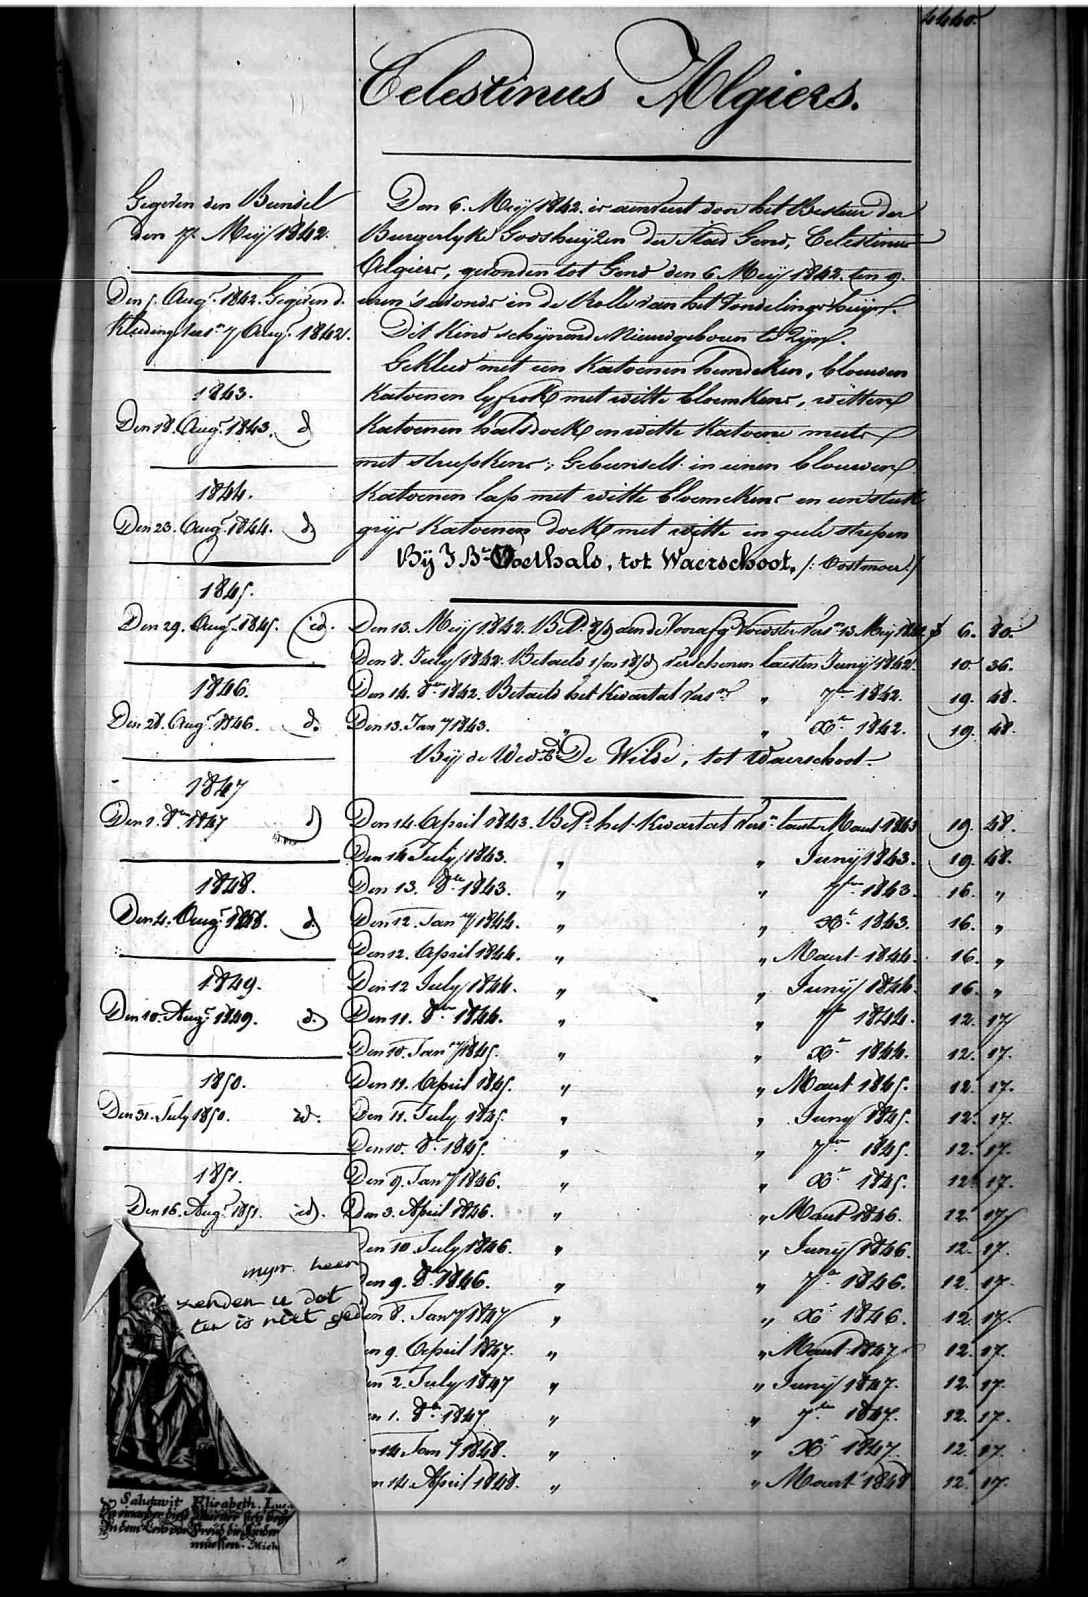 4440.
Celestinus Algiers.
Gegeven den Bunsel
den 7 Meij 1842.
Den 5. Augt 1842. Gegeven d.
Kleding 7 Aug. 1842.
1843.
Den 18. Augt 1843. d
1844.
Den 23. Augt 1844. d
1845.
Den 29. Augt 1845. id.
1846.
Den 28. Augt 1846. d.
1847
Den 1. 8er 1847 d
1848.
Den 4. Augt 1848. d.
1849.
Den 10. Augt 1849. d.
1850.
Den 31. July 1850. id.
1851.
Den 16. Augt 1851. id.
Den 6. Meij 1842. is aenveert door het Bestuer der
Burgerlyke Godshuijzen der Stad Gend, Celestinus
Algiers, gevonden tot Gend den 6 Meij 1842. ten 9.
uren 's avonds in de Rolle van het Vondelings huijs.
Dit Kind schijnende Nieuwgeboren te Zijn.
Gekleed met een Katoenen hemdeken, blauwen
Katoenen lyfrok met witte bloemkens, witten
Katoenen halsdoek en witte Katoene muts
met streepkens; Gebunselt in eenen blauwen
Katoenen lap met witte bloemekens en een stuk
grijs Katoenen doek met witte en geele strepen
Bij J. Bte Goethals, tot Waerschoot, /: Oostmoer :/
Den 13. Meij 1842. Bet. aen de Voorafg. Voedster 13 Meij 1842 f 6. 80.
Den 8. July 1842. Betaeld verschenen laesten Junij 1842. 10 36.
Den 14. 8er 1842. Betaeld het Kwartael vers. " 7er 1842. 19. 48.
Den 13. Jany 1843. " " Xer 1842. 19. 48.
Bij de Wed. De Wilde, tot Waerschoot.
Den 14. April 1843. Bet. het Kwartael vers. laesten Maert 1843 19. 48.
Den 14 July 1843. " " Junij 1843. 19. 48.
Den 13. 8er 1843. " " 7er 1843. 16. "
Den 12. Jany 1844. " " Xer 1843. 16. "
Den 12. April 1844. " " Maert 1844. 16. "
Den 12 July 1844. " " Junij 1844. 16. "
Den 11. 8er 1844. " " 7er 1844. 12. 17
Den 10. Jany 1845. " " Xer 1844. 12. 17.
Den 11. April 1845. " " Maert 1845. 12. 17.
Den 11. July 1845. " " Juny 1845. 12. 17.
Den 10. 8er 1845. " " 7er 1845. 12. 17.
Den 9. Jany 1846. " " Xer 1845. 12. 17.
Den 3. April 1846. " " Maert 1846. 12. 17
den 10. July 1846. " " Junij 1846. 12. 17.
den 9. 8er 1846. " " 7er 1846. 12. 17.
en 8. Jany 1847 " " Xer 1846. 12. 17.
en 9. April 1847. " " Maert 1847 12. 17.
en 2. July 1847 " " Junij 1847. 12. 17.
n 1. 8er 1847. " " 7er 1847. 12. 17.
14 Jany 1848. " " Xer 1847. 12. 17.
n 14 April 1848. " " Maert 1848 12. 17.
myn heer
zenden u dat
ter is niet ged
Elisabeth.